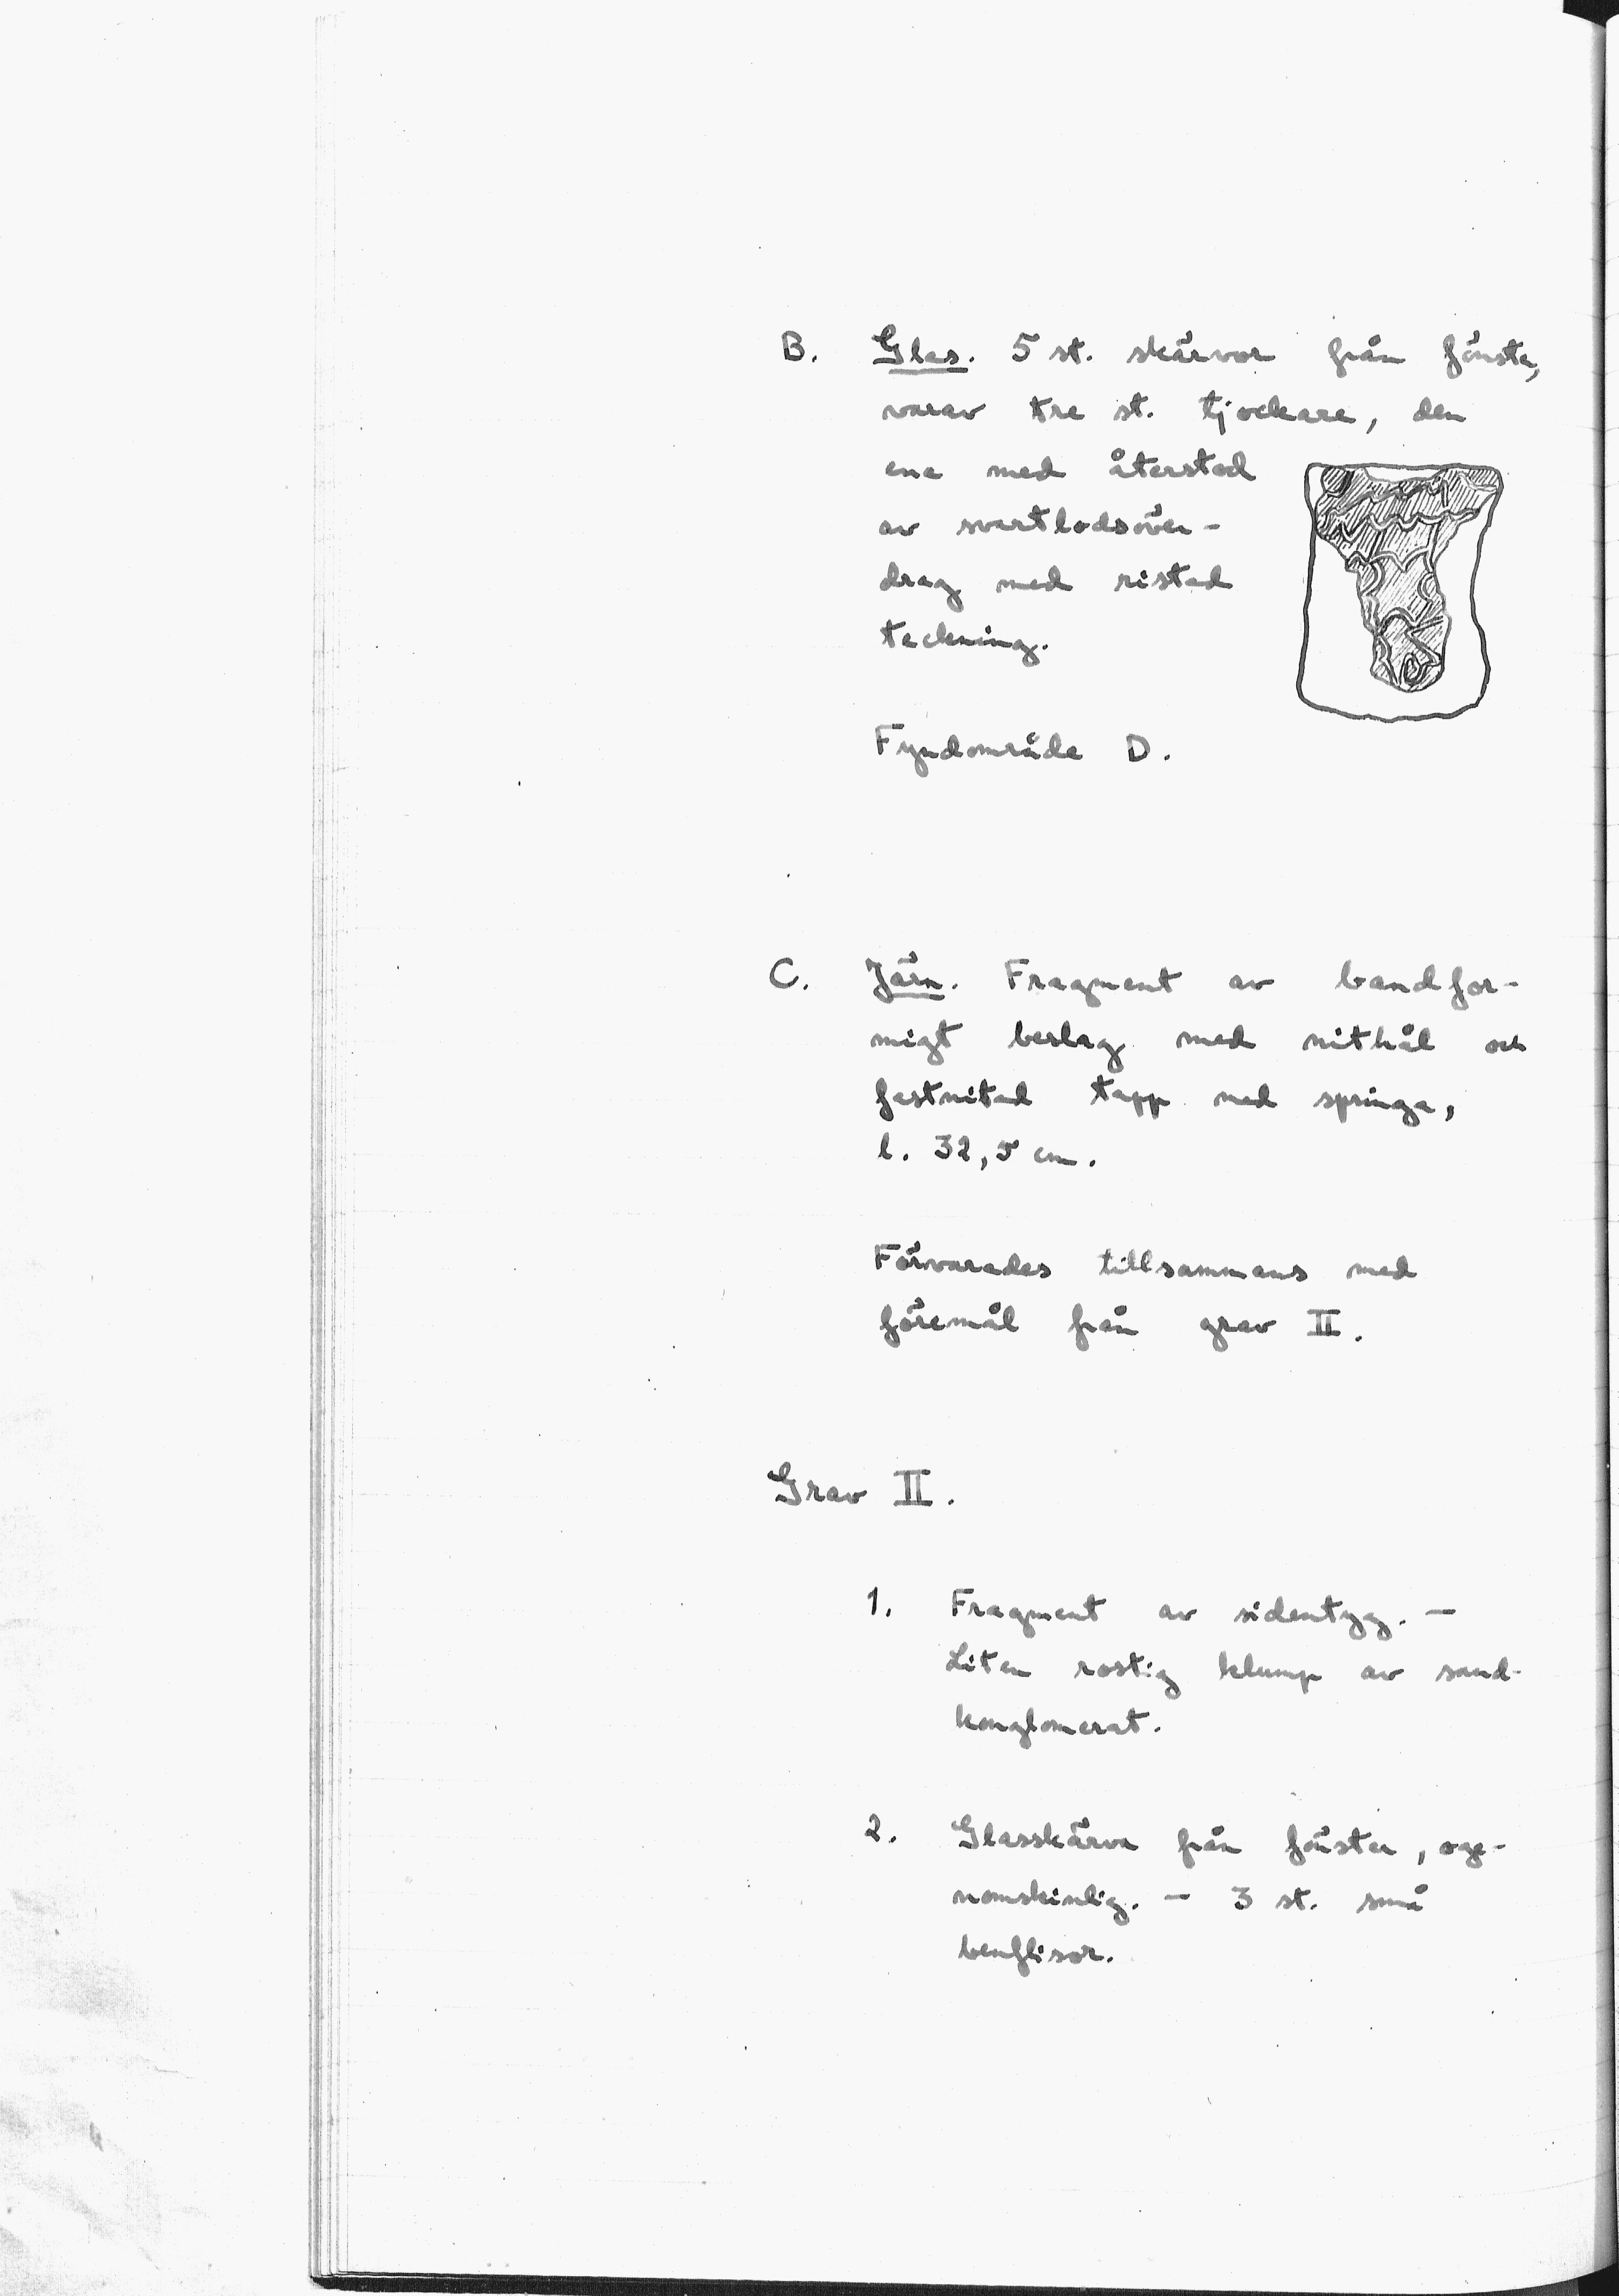 B. Glas. 5 st. skärvor från fönster,
varav tre st. tjockare, den
ena med återstod
av svartlodsöver-
drag med ristad
teckning.
Fyndområde D.
C. Järn. Fragment av bandfor-
migt beslag med nithål och
fastnitad tapp med springa,
l. 32,5 cm.
Förvarades tillsammans med
föremål från grav II.
Grav II.
1. Fragment av sidentyg. —
Liten rostig klump av sand-
konglomerat.
2. Glasskärva från fönster, oge-
nomskinlig. — 3 st. små
benflisor.